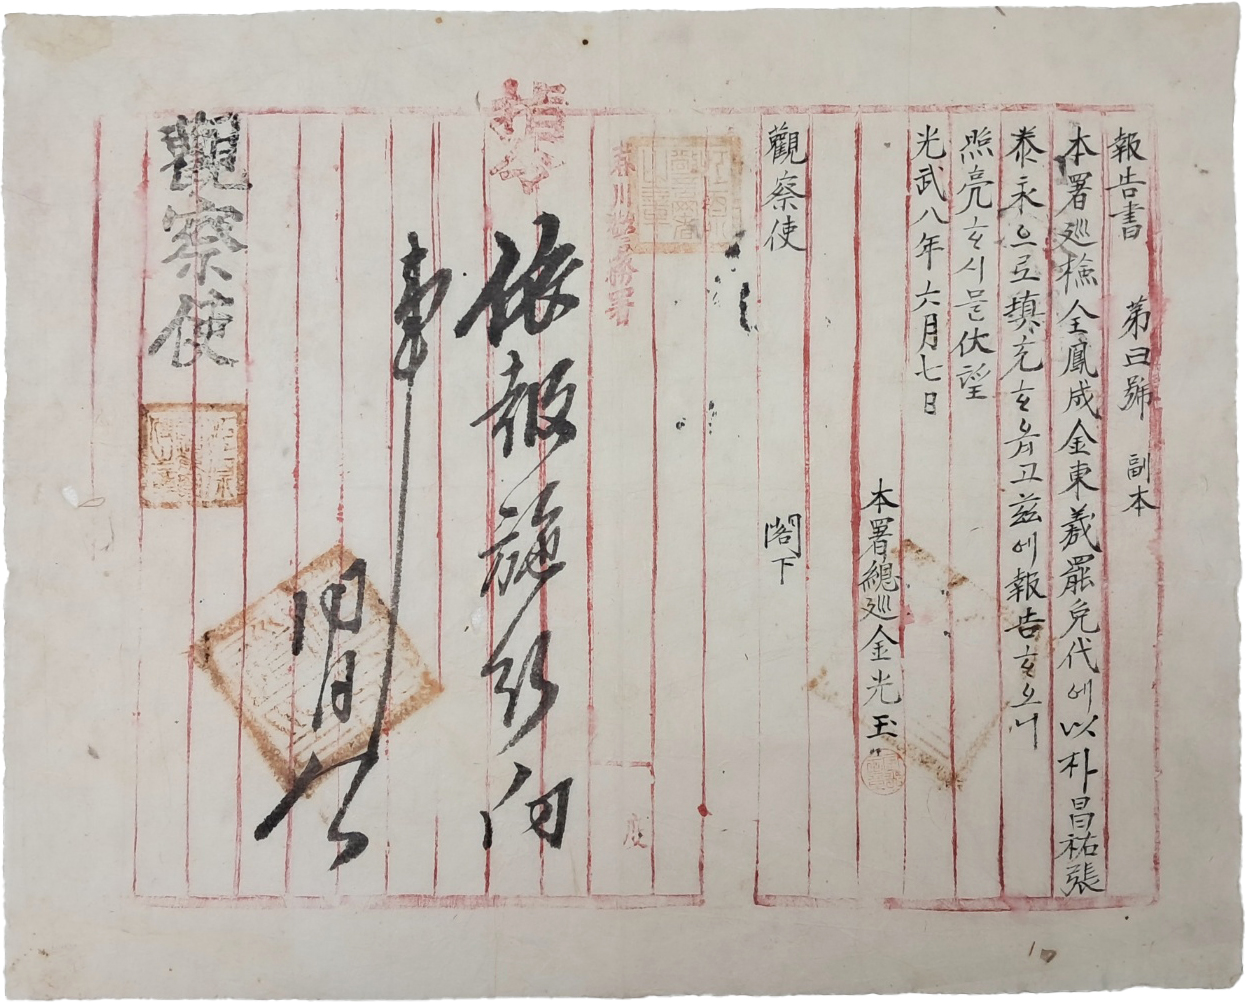 報告書 苐四號 副本
本署巡檢全鳳成金東義罷免代에以朴昌祐張
泰永으로塡充ᄒᆞ엿고玆에報告ᄒᆞ오니
照亮ᄒᆞ시믈伏望
光武八年六月七日
本署總巡金光玉
觀察使 閣下
春川警務署 度
指令
依報施行向
事
同月八
觀察使